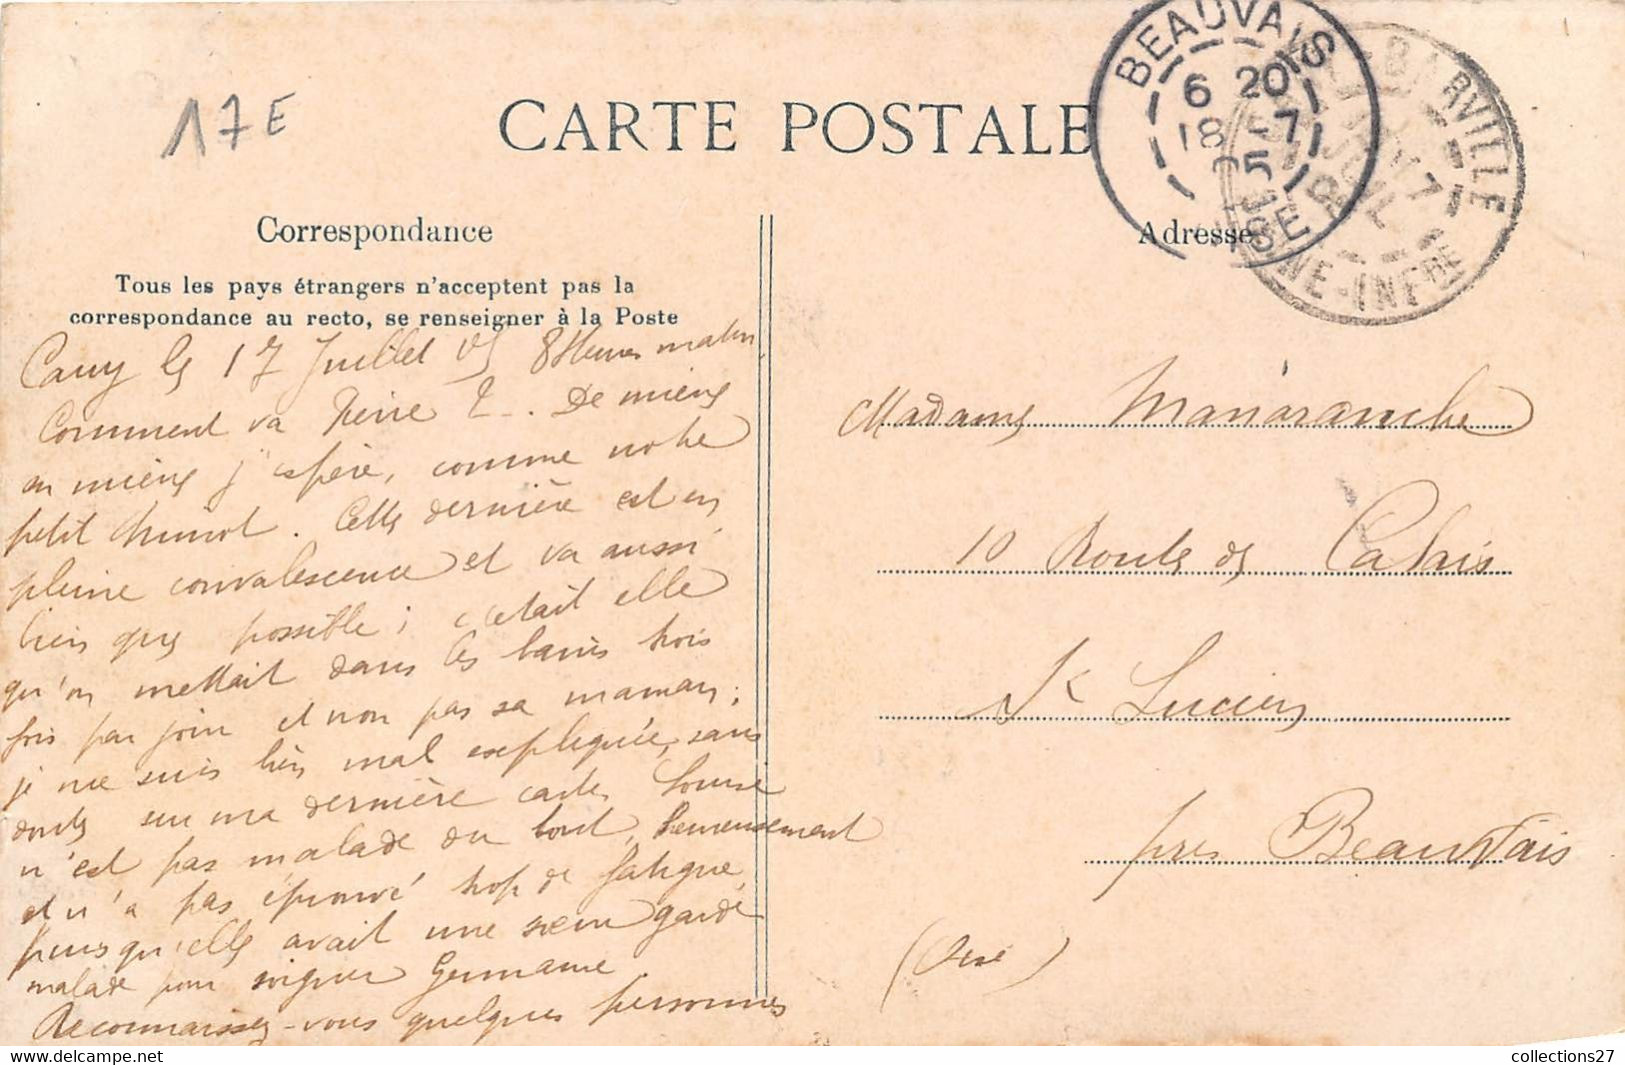 17E
CARTE POSTALE
BEAUVAIS
6 20
18 -7
05
OISE
BARVILLE
17
JUIL
NE-INFRE
Correspondance
Adresse
Tous les pays étrangers n'acceptent pas la
correspondance au recto, se renseigner à la Poste
Cany le 17 Juillet 05 8 Heures matin
Comment va Pierre ? _ . De mieux
en mieux j'espère, comme notre
petit Minot. Cette dernière est en
pleine convalescence et va aussi
bien que possible ; c'était elle
qu'on mettait dans les bains trois
fois par jour et non pas sa maman ;
je me suis bien mal expliquée, sans
doute sur ma dernière carte, Louise
n'est pas malade du tout, heureusement
et n'a pas éprouvé trop de fatigue,
puisqu'elle avait une sœur garde
malade pour soigner Germaine.
Reconnaissez-vous quelques personnes
Madame Manaranche
10 Route de Calais
St Lucien
près Beauvais
(Oise)
collections27